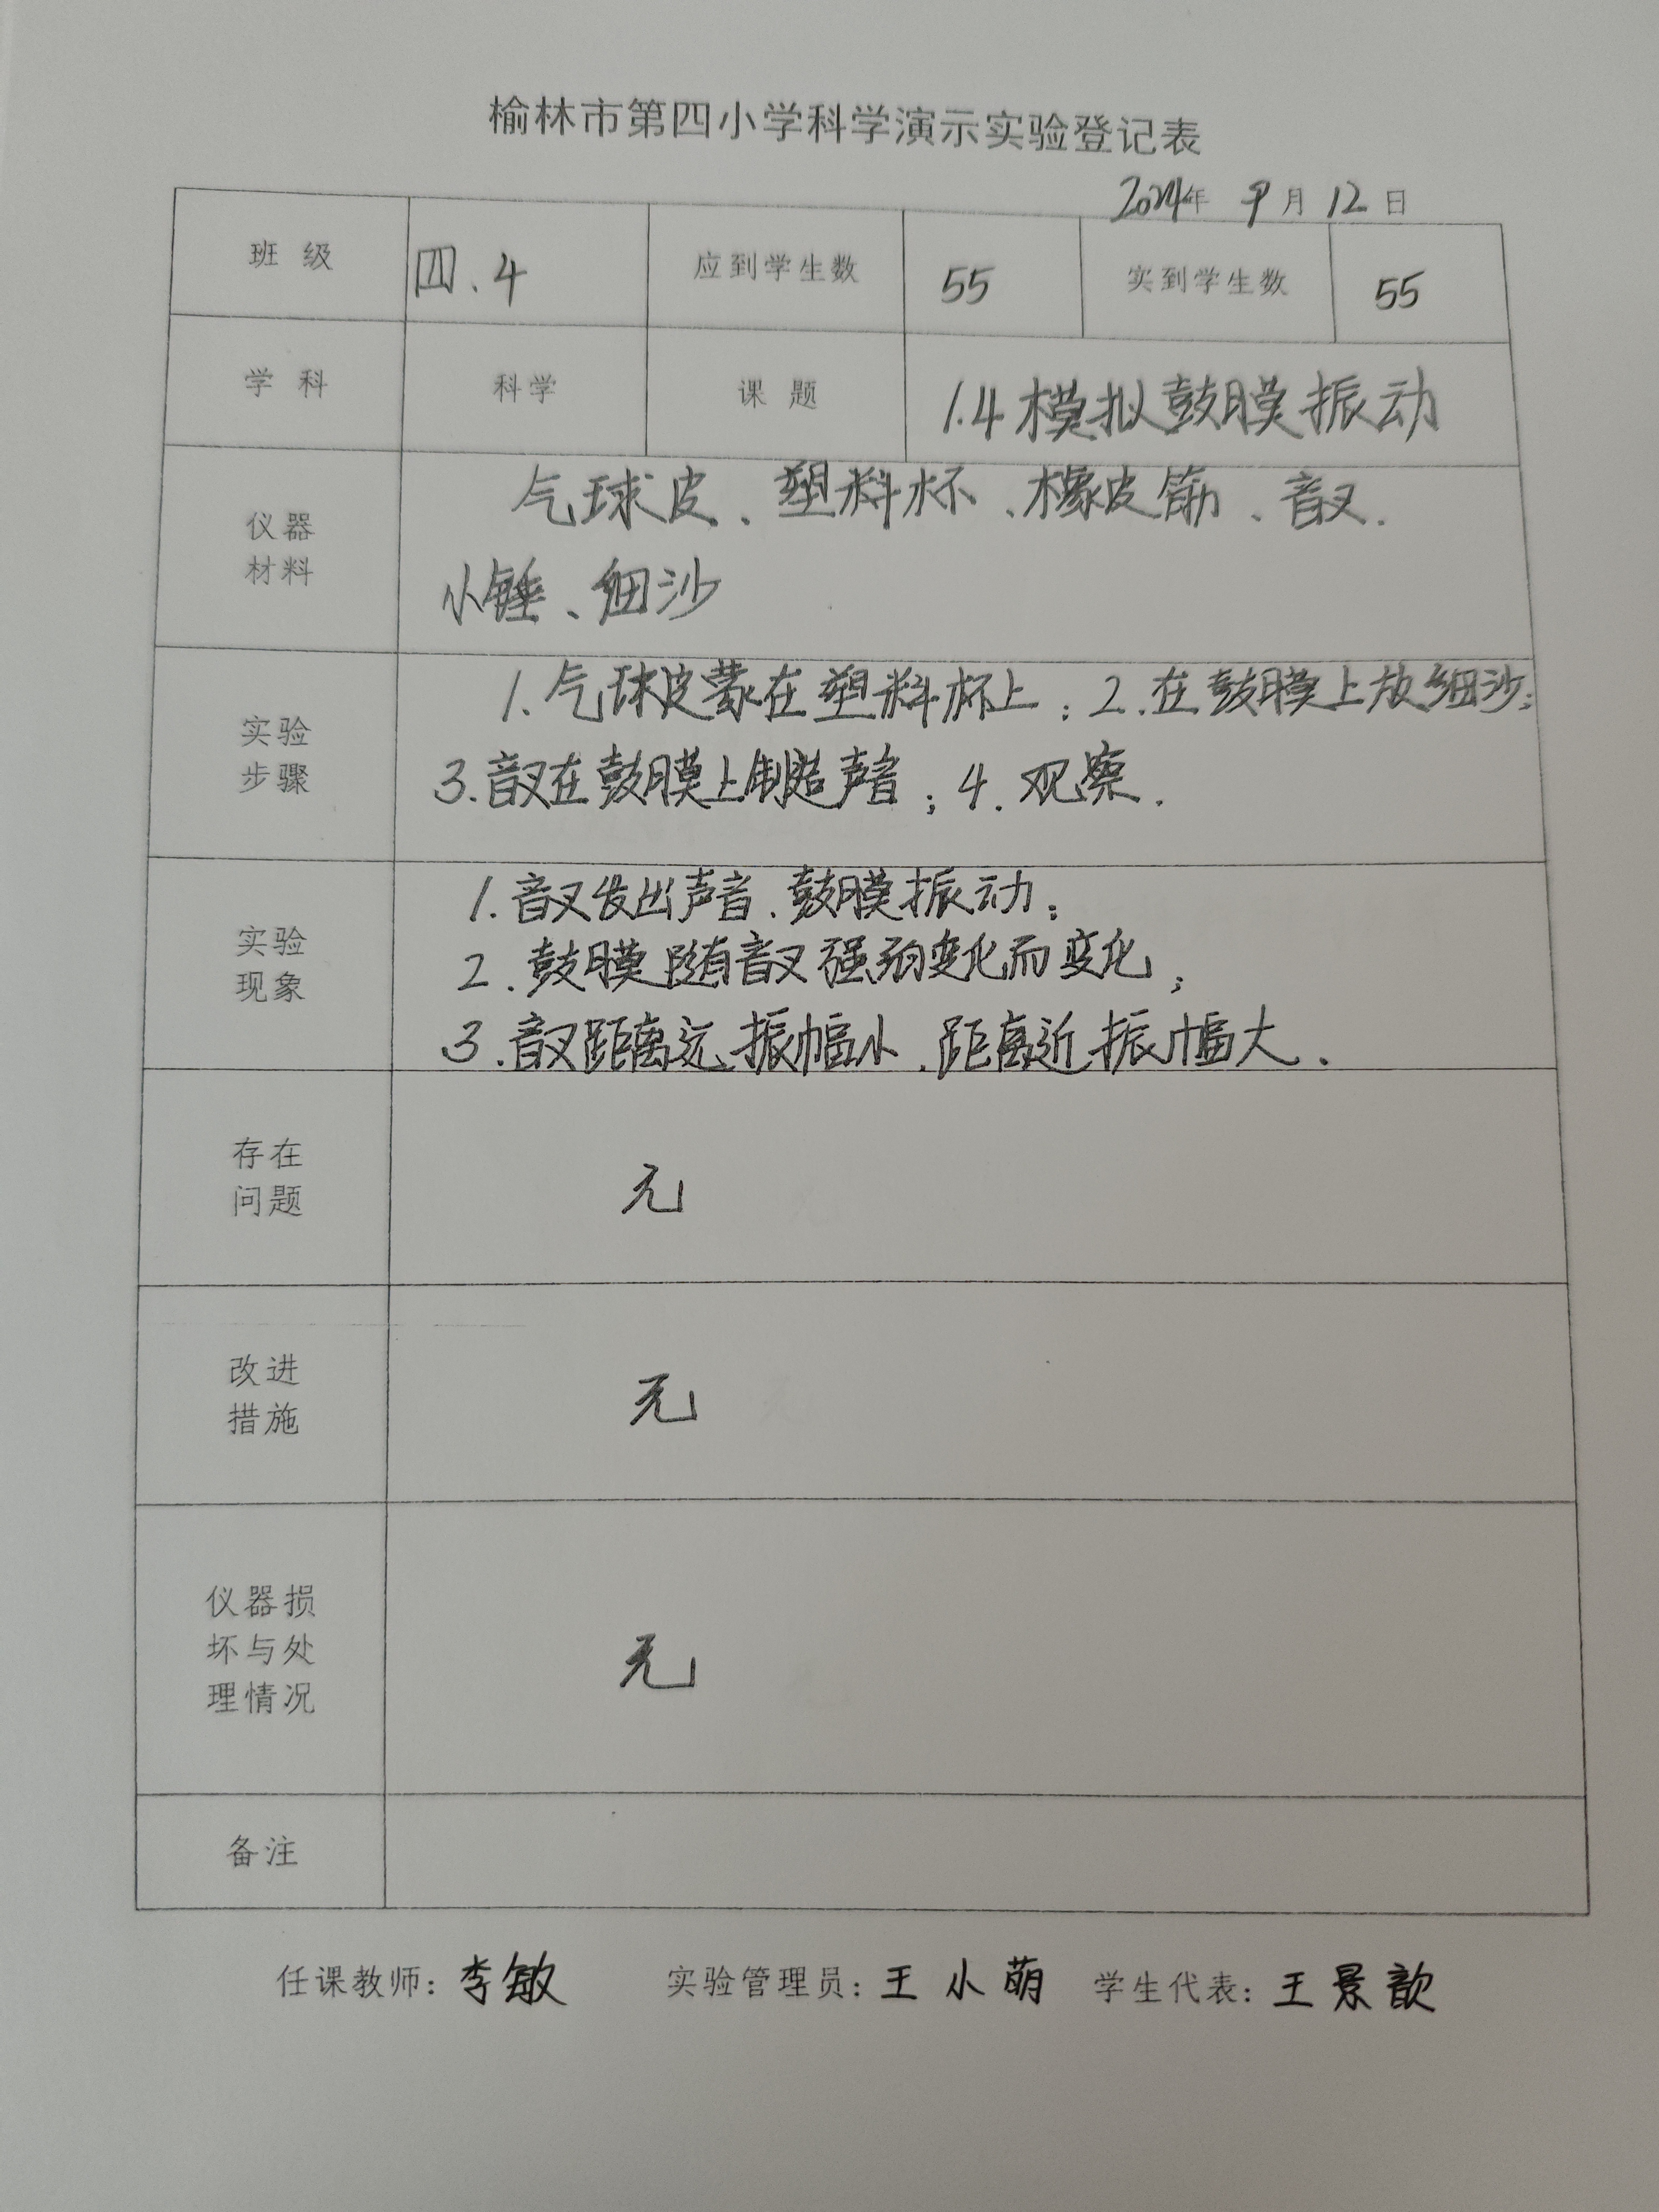 榆林市第四小学科学演示实验登记表
2024年 9月 12日
班级 四.4 应到学生数 55 实到学生数 55
学科 科学 课题 1.4 模拟鼓膜振动
仪器
材料
气球皮、塑料杯、橡皮筋、音叉.
小锤、细沙
实验
步骤
1.气球皮蒙在塑料杯上;2.在鼓膜上放细沙;
3.音叉在鼓膜上制造声音;4.观察.
实验
现象
1.音叉发出声音、鼓膜振动;
2.鼓膜随音叉强弱变化而变化;
3.音叉距离远、振幅小、距离近、振幅大.
存在
问题
无
改进
措施
无
仪器损
坏与处
理情况
无
备注
任课教师:李敏 实验管理员:王小萌 学生代表:王景歆